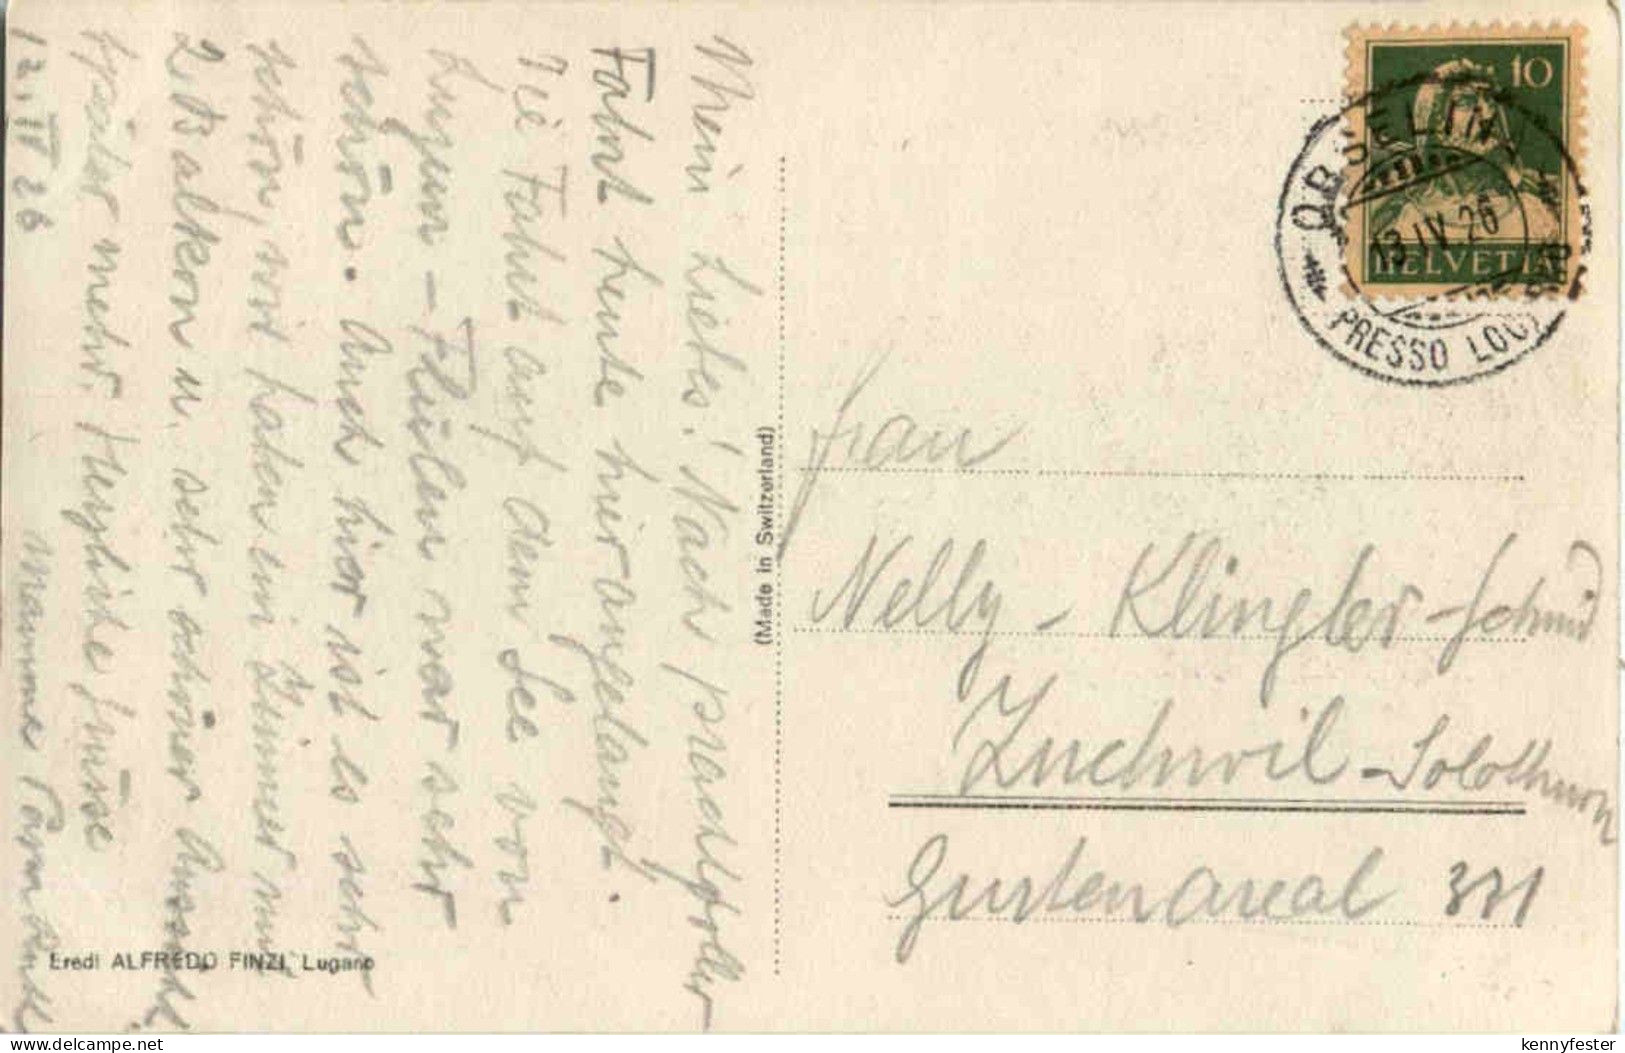 Mein Liebes! Nach prachtvoller
Fahrt heute hier angelangt.
Die Fahrt auf dem See von
Luzern - Flüelen war sehr
schön. Auch hier ist es sehr
schön, wir haben ein Zimmer mit
2 Balkon u. sehr schöner Aussicht
später mehr. Herzliche Küsse
12. IV 26 Mamma
Eredi ALFREDO FINZI, Lugano
(Made in Switzerland)
10
HELVETIA
ORSELINA
13.IV.26
PRESSO LOCARNO
Frau
Nelly - Klingler-Schmid
Zuchwil - Solothurn
Gurtenareal 331
kennyfester
www.delcampe.net